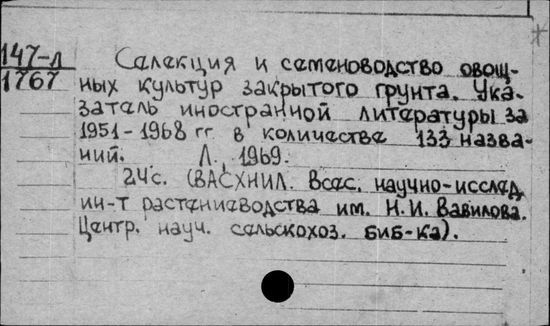 147-Л
1767
Селекция и семеноводство овощ-
ных культур закрытого грунта. Ука-
затель иностранной литературы за
1951-1968 гг. в количестве 133 назва-
ний. Л., 1969.
24с. (ВАСХНИЛ. Всес. научно-исслед.
ин-т растениеводства им. Н.И. Вавилова.
Центр. науч. сельскохоз. биб-ка).